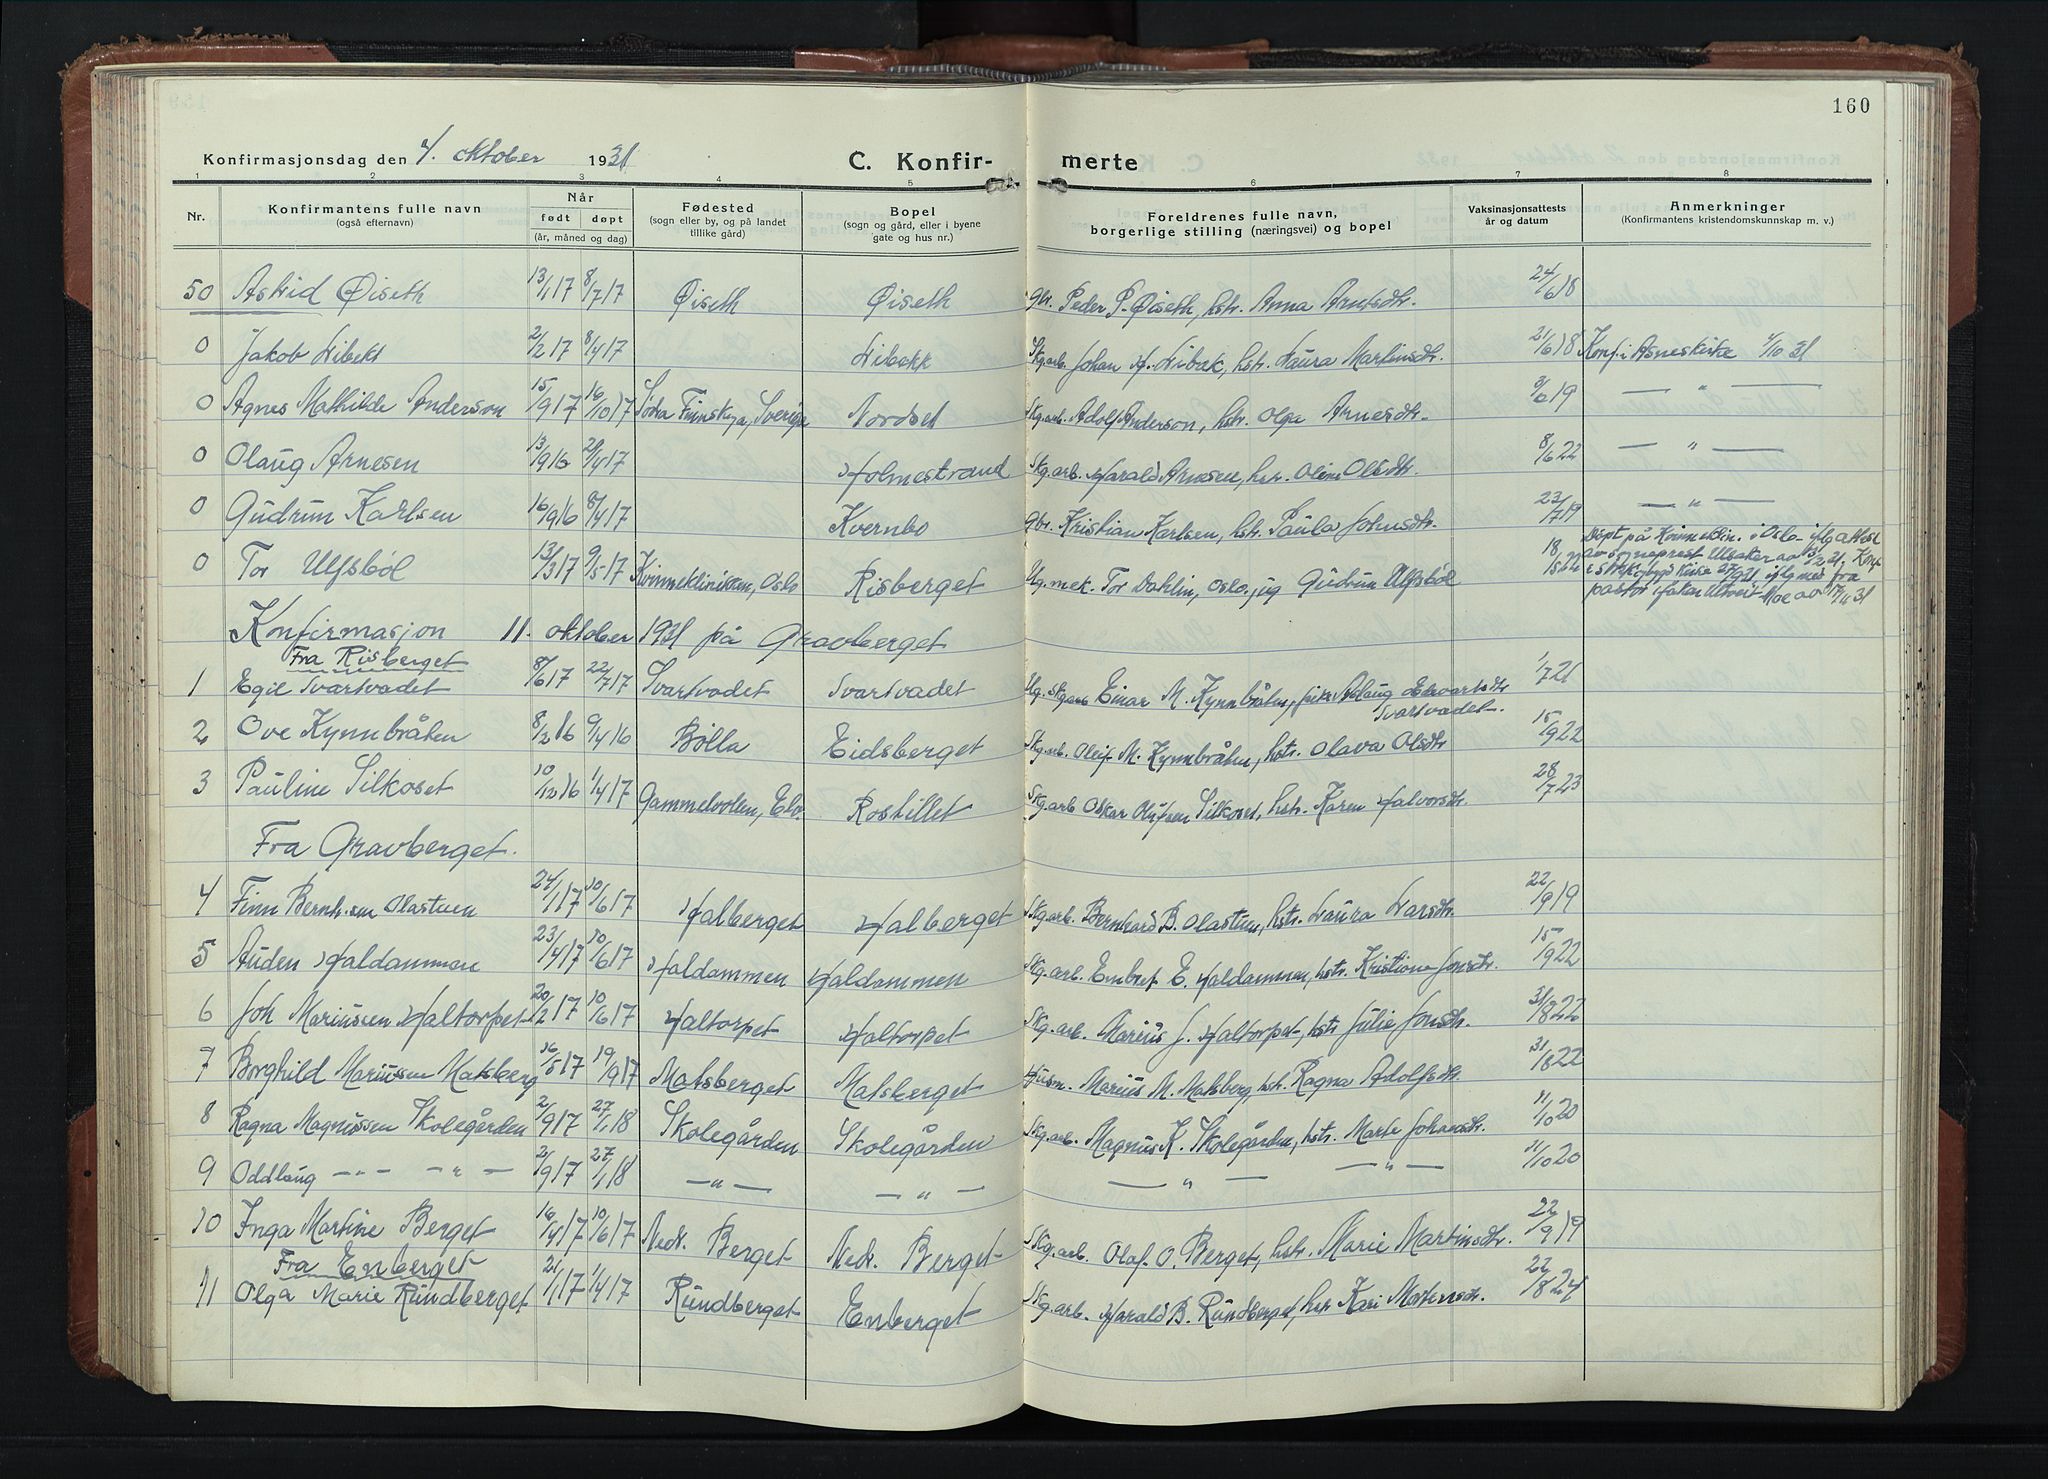 160
Konfirmasjonsdag den 4. oktober 1931 C. Konfir- merte
1 2 3 4 5 6 7 8
Nr. Konfirmantens fulle navn (også efternavn) Når født døpt (år, måned og dag) Fødested (sogn eller by, og på landet tillike gård) Bopel (sogn og gård, eller i byene gate og hus nr.) Foreldrenes fulle navn, borgerlige stilling (næringsvei) og bopel Vaksinasjonsattests år og datum Anmerkninger (Konfirmantens kristendomskunnskap m. v.)
50 Astrid Øiseth 13/1 17 8/7 17 Øiseth Øiseth gbr. Peder P. Øiseth, hstr. Anna Arntsdtr. 24/6 18
0 Jakob Libekk 2/2 17 8/4 17 Libekk Skg.arb. Johan H. Libæk, hstr. Laura Martinsdtr. 21/6 18 Konf. i Åsneskirke 4/10 31
0 Agnes Mathilde Anderson 15/9 17 16/10 17 Södra Finnskoga, Sverige Nordset Skg.arb. Adolf Anderson, hstr. Olga Arnesdtr. 9/6 19 — " —
0 Olaug Arnesen 13/9 16 28/4 17 Holmestrand Skg.arb. Harald Arnesen, hstr. Oline Olsdtr. 8/6 22 — " —
0 Gudrun Karlsen 16/9 16 8/4 17 Kvernbo gbr. Kristian Karlsen, hstr. Paula Johnsdtr. 23/7 19 — " —
0 Tor Ulfsbøl 13/3 17 9/5 17 Kvinneklinikken, Oslo Risberget Ug. mek. Tor Dahlin, Oslo, pig Gudrun Ulfsbøl 18/ Døpt på Kvinneklin. i Oslo iflg attest
av sogneprest Ulsaker av 13/2 21. Konf.
kirke 27/9 31 iflg med. fra
pastor Håkon Moe av 17/11 31
Konfirmasjon 11. oktober 1931 på Gravberget
Fra Risberget
1 Egil Svartvadet 8/6 17 22/7 17 Svartvadet Svartvadet Ug. skgarb Einar M. Kynnbråten, pike Aslaug Edvartsdtr 1/7 21
Svartvadet.
2 Ove Kynnbråten 8/2 16 9/4 16 Bølla Eidsberget Skg.arb. Oleif M. Kynnbråten, hstr. Olava Olsdtr 15/9 22
3 Pauline Silkoset 10/12 16 1/4 17 Gammelvolen, Elv. Rostillet Skg.arb Oskar Olufsen Silkoset, hstr. Karen Halvorsdtr. 28/7 23
Fra Gravberget.
4 Finn Bernh.sen Olastuen 24/1 17 10/6 17 Halberget Halberget Skg.arb. Bernhard B. Olastuen, hstr. Laura Larsdtr. 22/9 19
5 Auden Haldammen 23/4 17 10/6 17 Haldammen Haldammen Skg.arb. Embret E. Haldammen, hstr. Kristiane Jonsdtr. 15/9 22
6 Joh Mariussen Haltorpet 20/2 17 10/6 17 Haltorpet Haltorpet Skg.arb. Marius J. Haltorpet, hstr Julie Jonsdtr. 31/8 22
7 Borghild Mariussen Matsberg 16/5 17 19/9 17 Matsberget Matsberget Husm. Marius M. Matsberg, hstr. Ragna Adolfsdtr. 31/8 22
8 Ragna Magnussen Skolegården 2/9 17 27/1 18 Skolegården Skolegården Skg.arb. Magnus K. Skolegården, hstr. Marte Johansdtr. 11/10 20
9 Oddlaug — " — — " — 2/9 17 27/1 18 — " — — " — — " — — " — 11/10 20
10 Inga Martine Berget 16/4 17 10/6 17 Nedr. Berget Nedr. Berget Skg.arb. Olaf O. Berget, hstr. Marie Martinsdtr. 22/9 19
Fra Enberget
11 Olga Marie Rundberget 21/1 17 1/4 17 Rundberget Enberget Skg.arb. Harald B. Rundberget, hstr Kari Mortensdtr. 22/8 24